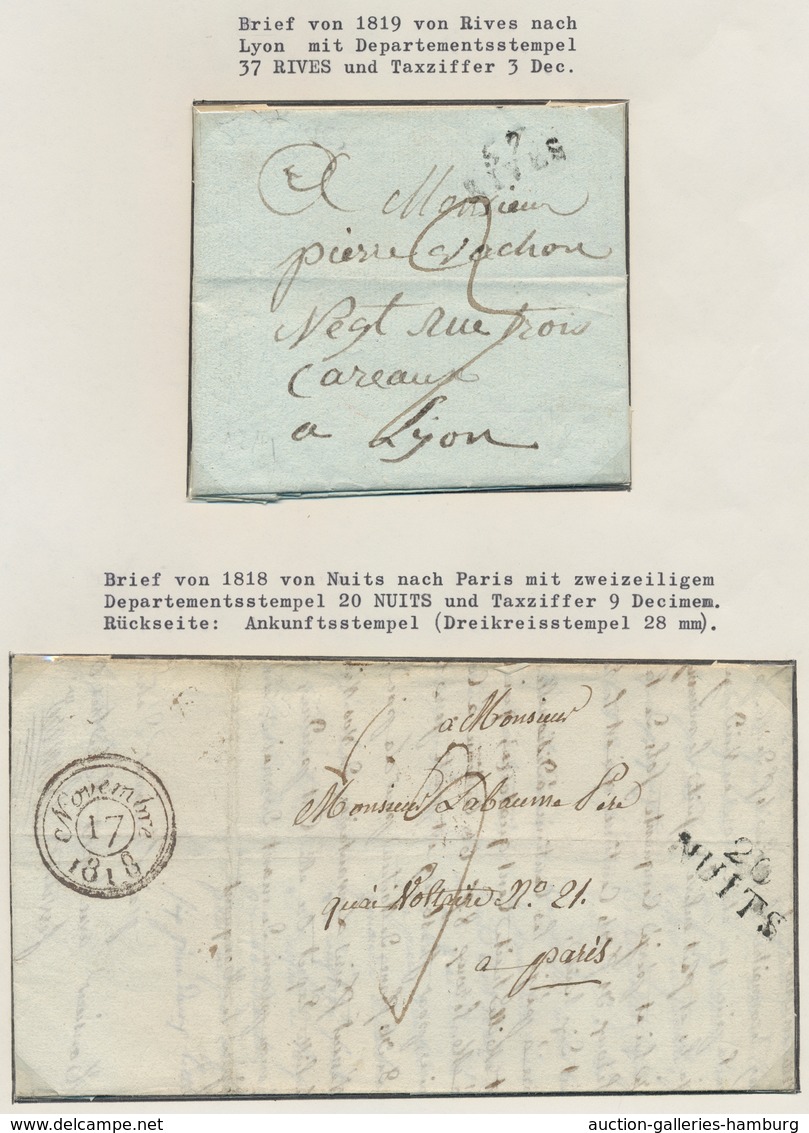 Brief von 1819 von Rives nach
Lyon mit Departementsstempel
37 RIVES und Taxziffer 3 Dec.
37
RIVES
A Monsieur
pierre Vachon
Negt Rue trois
Careaux
a Lyon
Brief von 1818 von Nuits nach Paris mit zweizeiligem
Departementsstempel 20 NUITS und Taxziffer 9 Decimem.
Rückseite: Ankunftsstempel (Dreikreisstempel 28 mm).
a Monsieur
Monsieur Labaume Pere
quai Voltaire N.o 21.
a paris
Novembre
17
1818
20
NUITS
auction-galleries-hamburg